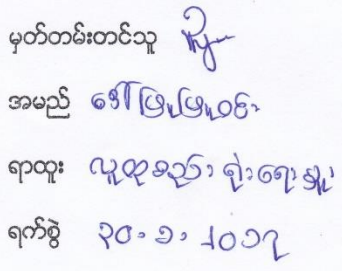 မှတ်တမ်းတင်သူ
အမည် ဒေါ်ဖြူဖြူဝင်း
ရာထူး လူထုစည်းရုံးရေးမှူး
ရက်စွဲ ၃၀.၁.၂၀၁၇